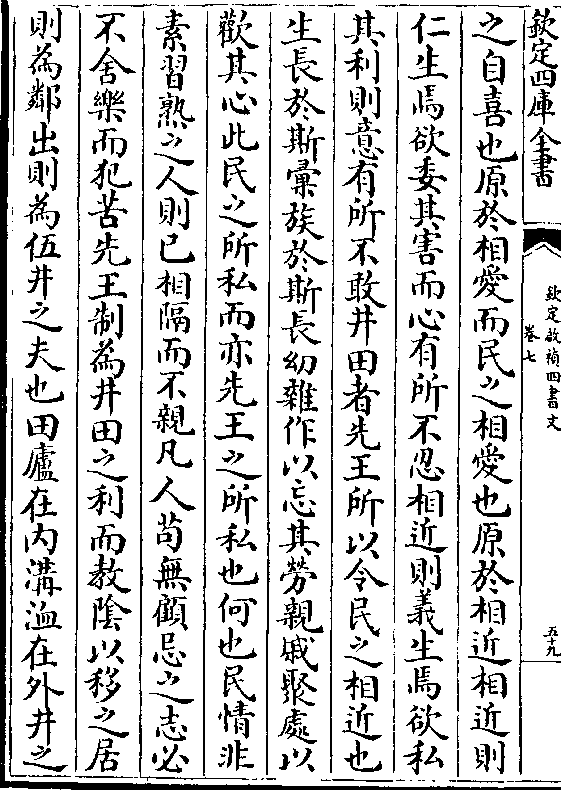 欽定四庫全書
欽定啟禎四書文
卷七
五十九
之自喜也原於相愛而民之相愛也原於相近相近則
仁生焉欲委其害而心有所不忍相近則義生焉欲私
其利則意有所不敢井田者先王所以令民之相近也
生長於斯彚族於斯長幼雜作以忘其勞親戚聚處以
歡其心此民之所私而亦先王之所私也何也民情非
素習熟之人則已相隔而不親凡人苟無顧忌之志必
不舍樂而犯苦先王制為井田之利而教隂以移之居
則為鄰出則為伍井之夫也田廬在内溝洫在外井之